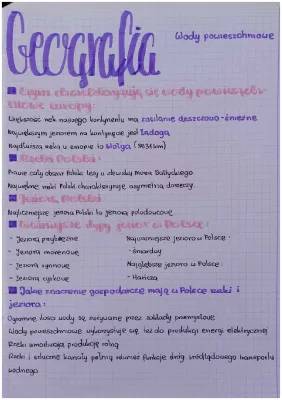 Geografia
Wody powierzchniowe
Czym charakteryzują się wody powierzch-
niowe Europy:
Większość rzek naszego kontynentu ma zasilanie deszczowo-śnieżne
Największym jeziorem na kontynencie jest Ładoga
Najdłuższą rzeką w europie to Wołga
Rzeki Polski:
Prawie cały obszar Polski leży w zlewisku Morza Bałtyckiego
Największe rzeki Polski charakteryzuje asymetria dorzeczy.
Jeziora Polski
Najliczniejsze jeziora Polski to jeziora polodowcowe
typy jezior w Polsce:
- Jeziora przybrzeżne
- Jeziora morenowe
- Jeziora rynnowe
- Jeziora cyrkowe
Największe jezioro w Polsce:
- Śniardwy
Najgłębsze jezioro w Polsce:
- Hańcza
Jakie znaczenie gospodarcze mają w Polsce rzeki i
jeziora:
Ogromne ilości wody są zużywane przez zakłady przemysłowe
Wody powierzchniowe wykorzystuje się też do produkcji energii elektrycznej
Rzeki umożliwiają produkcję rolną
Rzeki i sztuczne kanały pełnią również funkcje dróg śródlądowego transportu
wodnego